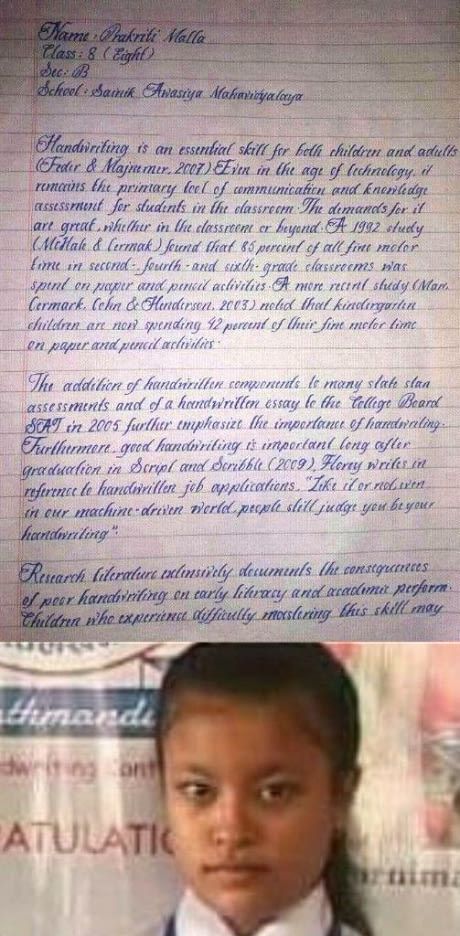 Name: Prakriti Malla
Class: 8 (Eight)
Sec: B
School: Sainik Awasiya Mahavidyalaya
Handwriting is an essential skill for both children and adults
(Feder & Majnemer, 2007) Even in the age of technology, it
remains the primary tool of communication and knowledge
assessment for students in the classroom. The demands for it
are great, whether in the classroom or beyond. A 1992 study
(McHale & Cermak) found that 85 percent of all fine motor
time in second-, fourth-and sixth-grade classrooms was
spent on paper and pencil activities. A more recent study (Marr,
Cermark, Cohn & Henderson, 2003) noted that kindergarten
children are now spending 42 percent of their fine motor time
on paper and pencil activities.
The addition of handwritten components to many state stan
assessments and of a handwritten essay to the College Board
SAT in 2005 further emphasize the importance of handwriting.
Furthermore, good handwriting is important long after
graduation in Script and Scribble (2009), Florey writes in
reference to handwritten job applications, "Like it or not, even
in our machine-driven world, people still judge you by your
handwriting".
Research literature extensively documents the consequences
of poor handwriting on early literacy and academic perform.
Children who experience difficulty mastering this skill may
thmandu
dwriting Cont
ATULATIO